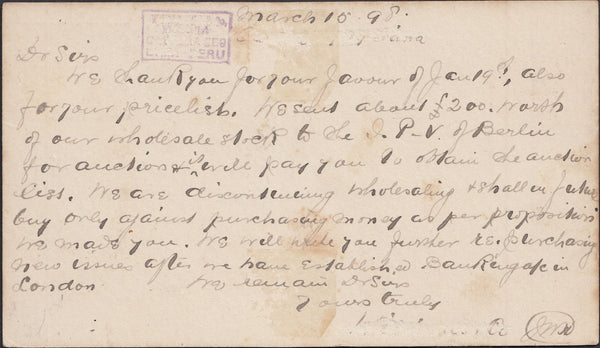 March 15. 98.
Dr Sirs
We thank you for your favour of Jan 19th, also
for your pricelist. We sent about £200. worth
of our wholesale stock to the I. P. V. of Berlin
for auction & it will pay you to obtain the auction
list. We are discontinuing wholesaling & shall in future
buy only against purchasing money as per proposition
we made you. We will write you further re. purchasing
new issues after we have established Banking a/c in
London We remain Dr Sirs
Yours truly